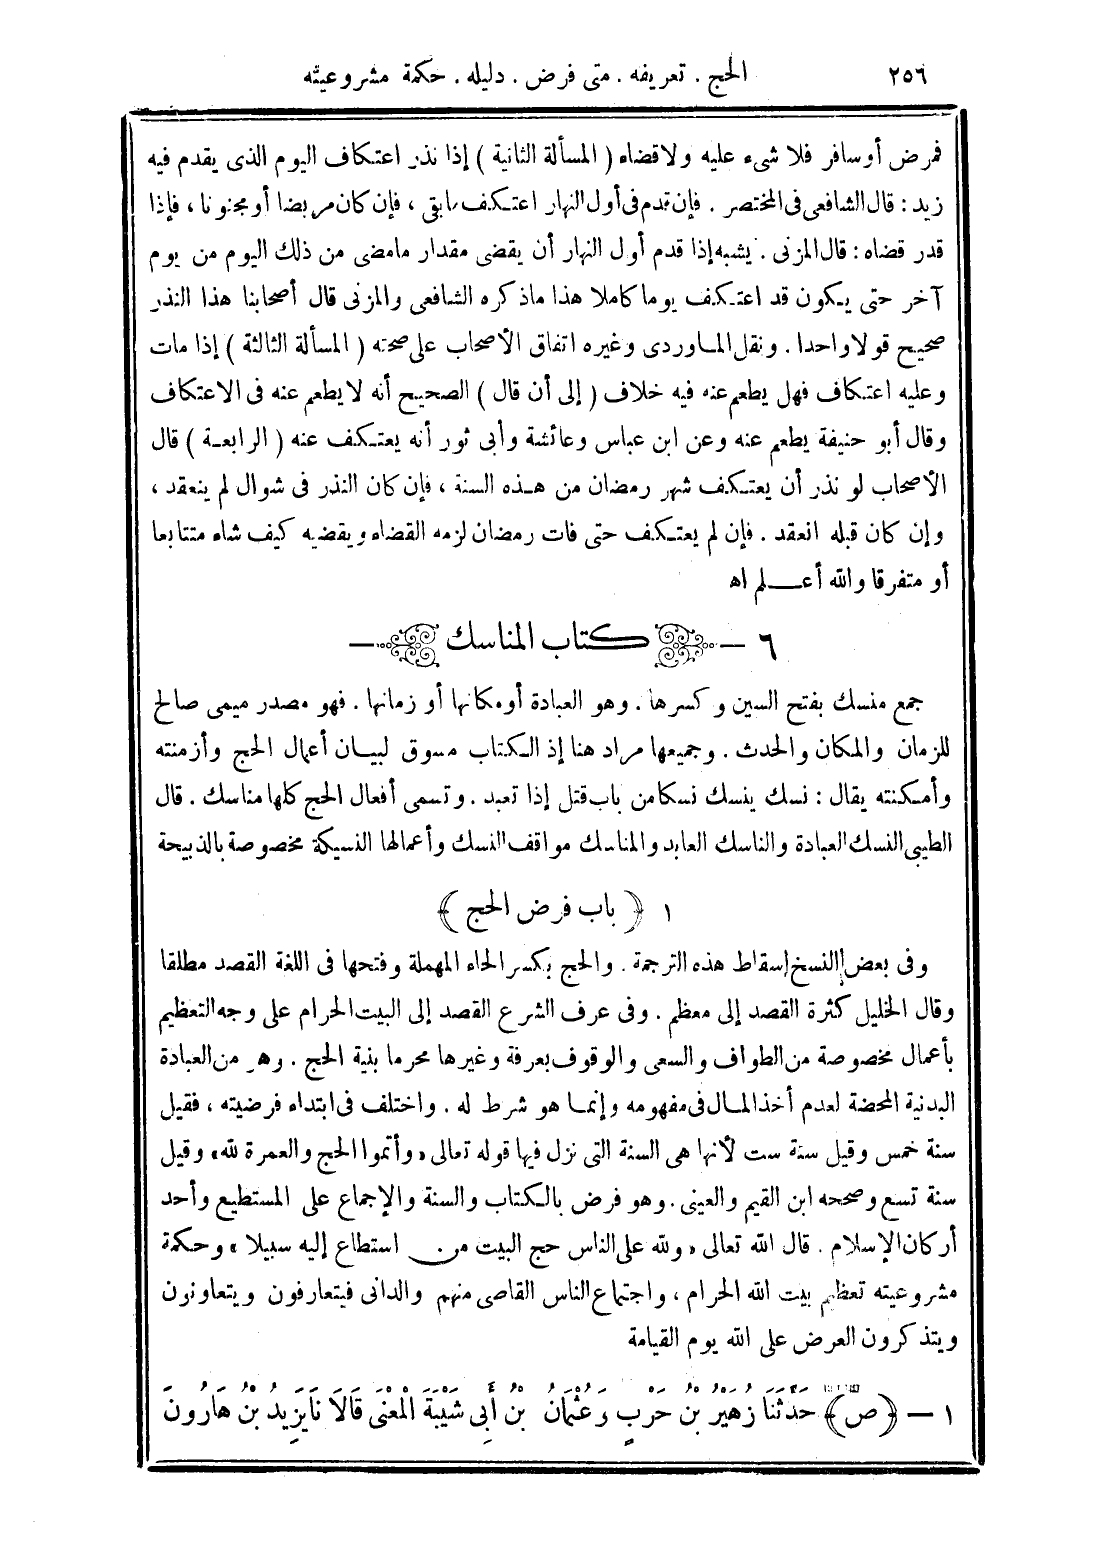 ٢٥٦ الحج . تعريفه . متى فرض . دليله . حكمة مشروعيته
فمرض أو سافر فلا شىء عليه ولاقضاء ( المسألة الثانية ) إذا نذر اعتكاف اليوم الذى يقدم فيه
زيد : قال الشافعى فى المختصر . فإن قدم فى أول النهار اعتكف مابقى ، فإن كان مريضا أو مجنونا ، فإذا
قدر قضاه : قال المزنى . يشبه إذا قدم أول النهار أن يقضى مقدار مامضى من ذلك اليوم من يوم
آخر حتى يكون قد اعتكف يوما كاملا هذا ماذكره الشافعى والمزنى قال أصحابنا هذا النذر
صحيح قولا واحدا . ونقل الماوردى وغيره اتفاق الأصحاب على صحته ( المسألة الثالثة ) إذا مات
وعليه اعتكاف فهل يطعم عنه فيه خلاف ( إلى أن قال ) الصحيح أنه لا يطعم عنه فى الاعتكاف
وقال أبو حنيفة يطعم عنه وعن ابن عباس وعائشة وأبى ثور أنه يعتكف عنه ( الرابعة ) قال
الأصحاب لو نذر أن يعتكف شهر رمضان من هذه السنة ، فإن كان النذر فى شوال لم ينعقد ،
وإن كان قبله انعقد . فإن لم يعتكف حتى فات رمضان لزمه القضاء ويقضيه كيف شاء متتابعا
أو متفرقا والله أعلم اه
٦ – كتاب المناسك –
جمع منسك بفتح السين وكسرها . وهو العبادة أومكانها أو زمانها . فهو مصدر ميمى صالح
للزمان والمكان والحدث . وجميعها مراد هنا إذ الكتاب مسوق لبيان أعمال الحج وأزمنته
وأمكنته يقال : نسك ينسك نسكا من باب قتل إذا تعبد . وتسمى أفعال الحج كلها مناسك . قال
الطيبى النسك العبادة والناسك العابد والمناسك مواقف النسك وأعمالها النسيكة مخصوصة بالذبيحة
١ ﴿ باب فرض الحج ﴾
وفى بعض النسخ إسقاط هذه الترجمة . والحج بكسر الحاء المهملة وفتحها فى اللغة القصد مطلقا
وقال الخليل كثرة القصد إلى معظم . وفى عرف الشرع القصد إلى البيت الحرام على وجه التعظيم
بأعمال مخصوصة من الطواف والسعى والوقوف بعرفة وغيرها محرما بنية الحج . وهو من العبادة
البدنية المحضة لعدم أخذ المال فى مفهومه وإنما هو شرط له . واختلف فى ابتداء فرضيته ، فقيل
سنة خمس وقيل سنة ست لأنها هى السنة التى نزل فيها قوله تعالى «وأتموا الحج والعمرة لله» وقيل
سنة تسع وصححه ابن القيم والعينى . وهو فرض بالكتاب والسنة والإجماع على المستطيع وأحد
أركان الإسلام . قال الله تعالى «ولله على الناس حج البيت من استطاع إليه سبيلا» وحكمة
مشروعيته تعظيم بيت الله الحرام ، واجتماع الناس القاصى منهم والدانى فيتعارفون ويتعاونون
ويتذكرون العرض على الله يوم القيامة
١ – ﴿ص﴾ حَدَّثَنَا زُهَيْرُ بْنُ حَرْبٍ وَعُثْمَانُ بْنُ أَبِى شَيْبَةَ الْمَعْنَى قَالَا نَا يَزِيدُ بْنُ هَارُونَ